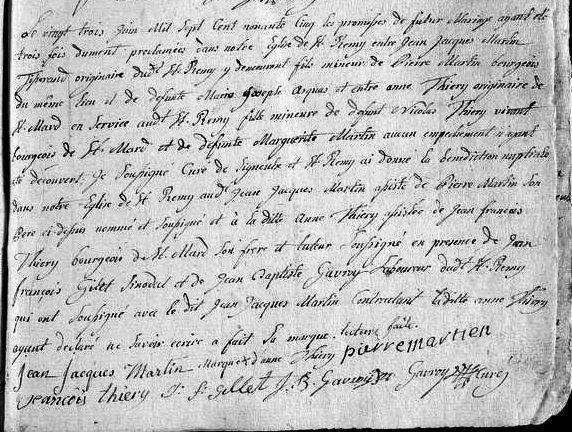 Le vingt trois juin Mil Sept Cent nonante Cinq les promesses de futur Mariage ayant été
trois fois dument proclamées dans notre Eglise de St Remy entre Jean Jacques Martin
Tisserand originaire dudt St Remy y demeurant fils mineur de Pierre Martin bourgeois
du même lieu et de defunte Marie Joseph Arquas et entre anne Thiery originaire de
St Mard en Service audt St Remy fille mineure de defunt Nicolas Thiery vivant
bourgeois de St Mard et de defunte Marguerite Martin aucun empechement n'ayant
été découvert, Je Soussigné Curé de Signeulx et St Remy ai donné la bénédiction nuptiale
dans notre Eglise de St Remy audt Jean Jacques Martin assisté de Pierre Martin Son
Pere ci-dessus nommé et soussigné et à la ditte Anne Thiery assistée de Jean françois
Thiery bourgeois de St Mard Son frere et tuteur Soussigné en présence de Jean
françois Gillet Sinodal et de Jean Baptiste Gavroy Laboureur dudt St Remy
qui ont Soussigné avec le dit Jean Jacques Martin Contractant ladite anne Thiery
ayant déclaré ne Savoir ecrire a fait Sa marque. lecture faite.
Jean Jacques Martin Marque X d'anne Thiery pierre martien
francois thiery J. f. gillet J. B. Gavroy Gavroy Curé